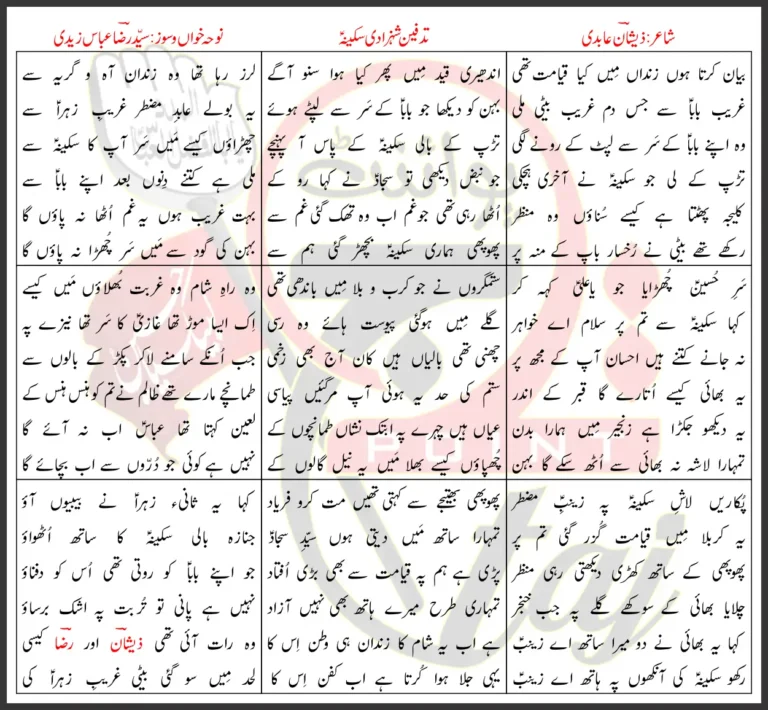 شاعر: ذیشانؔ عابدی
تدفین شہزادی سکینہؑ
نوحہ خواں و سوز: سیّد رضاؔ عباس زیدی
بیان کرتا ہوں زنداں میں کیا قیامت تھی
غریب باباؑ سے جس دم غریب بیٹی ملی
وہ اپنے باباؑ کے سَر سے لپٹ کے رونے لگی
تڑپ کے لی جو سکینہؑ نے آخری ہچکی
کلیجہ پھٹتا ہے کیسے سُناؤں وہ منظر
رکھے تھے بیٹی نے رُخسار باپ کے منہ پر
اندھیری قید مِیں پھر کیا ہوا سنو آگے
بہن کو دیکھا جو باباؑ کے سَر سے لپٹے ہوئے
تڑپ کے بالی سکینہؑ کے پاس آ پہنچے
جو نبض دیکھی تو سجادؑ نے کہا رو کے
اُٹھا رہی تھی جو غم اب وہ تھک گئی غم سے
پھوپھی ہماری سکینہؑ بچھڑ گئی ہم سے
لرز رہا تھا وہ زندان آہ و گریہ سے
یہ بولے عابدِ مضطر غریبِ زہراؑ سے
چھڑاؤں کیسے مَیں سَر آپ کا سکینہؑ سے
ملی ہے کتنے دِنوں بعد اپنے باباؑ سے
بہت غریب ہوں یہ غم اُٹھا نہ پاؤں گا
بہن کی گود سے مَیں سَر چُھڑا نہ پاؤں گا
سَرِ حُسینؑ چُھڑایا جو یاعلیؑ کہہ کر
کہا سکینہؑ سے تم پر سلام اے خواہر
نہ جانے کتنے ہیں احسان آپ کے مجھ پر
یہ بھائی کیسے اُتارے گا قبر کے اندر
یہ دیکھو جکڑا ہے زنجیر مِیں ہمارا بدن
تمہارا لاشہ نہ بھائی سے اُٹھ سکے گا بہن
ستمگروں نے جو کرب و بلا مِیں باندھی تھی
گلے مِیں ہوگئی پیوست ہائے وہ رسی
چھنی تھی بالیاں ہیں کان آج بھی زخمی
ستم کی حد یہ ہوئی آپ مرگئیں پیاسی
عیاں ہیں چہرے پہ ابتک نشاں طمانچوں کے
چھپاؤں کیسے بھلا مَیں یہ نیل گالوں کے
وہ راہِ شام وہ غربت بُھلاؤں مَیں کیسے
اِک ایسا موڑ تھا غازیؑ کا سَر تھا نیزے پہ
جب اُنکے سامنے لاکر پکڑ کے بالوں سے
طمانچے مارے تھے ظالم نے تم کو ہنس ہنس کے
لعین کہتا تھا عباسؑ اب نہ آئے گا
نہیں ہے کوئی جو دُرّوں سے اب بچائے گا
پُکاریں لاشِ سکینہؑ پہ زینبِؑ مضطر
یہ کربلا مِیں قیامت گُزر گئی تم پر
پھوپھی کے ساتھ کھڑی دیکھتی رہی منظر
چلایا بھائی کے سوکھے گلے پہ جب خنجر
کہا یہ بھائی نے دو میرا ساتھ اے زینبؑ
رکھو سکینہؑ کی آنکھوں پہ ہاتھ اے زینبؑ
پھوپھی بھتیجے سے کہتی تھیں مت کرو فریاد
تمہارا ساتھ مَیں دیتی ہوں سیّدِ سجادؑ
پڑی ہے ہم پہ قیامت سے بھی بڑی اُفتاد
تمہاری طرح میرے ہاتھ بھی نہیں آزاد
ہے اب یہ شام کا زندان ہی وطن اِس کا
یہی جلا ہوا کُرتا ہے اب کفن اِس کا
کہا یہ ثانیء زہراؑ نے بیبیوں آؤ
جنازہ بالی سکینہؑ کا ساتھ اُٹھواؤ
جو اپنے باباؑ کو روتی تھی اُس کو دفناؤ
نہیں ہے پانی تو تُربت پہ اشک برساؤ
وہ رات آئی تھی ذیشانؔ اور رضاؔ کیسی
لحد مِیں سو گئی بیٹی غریبِ زہراؑ کی
پوائنٹ
POINT
taj